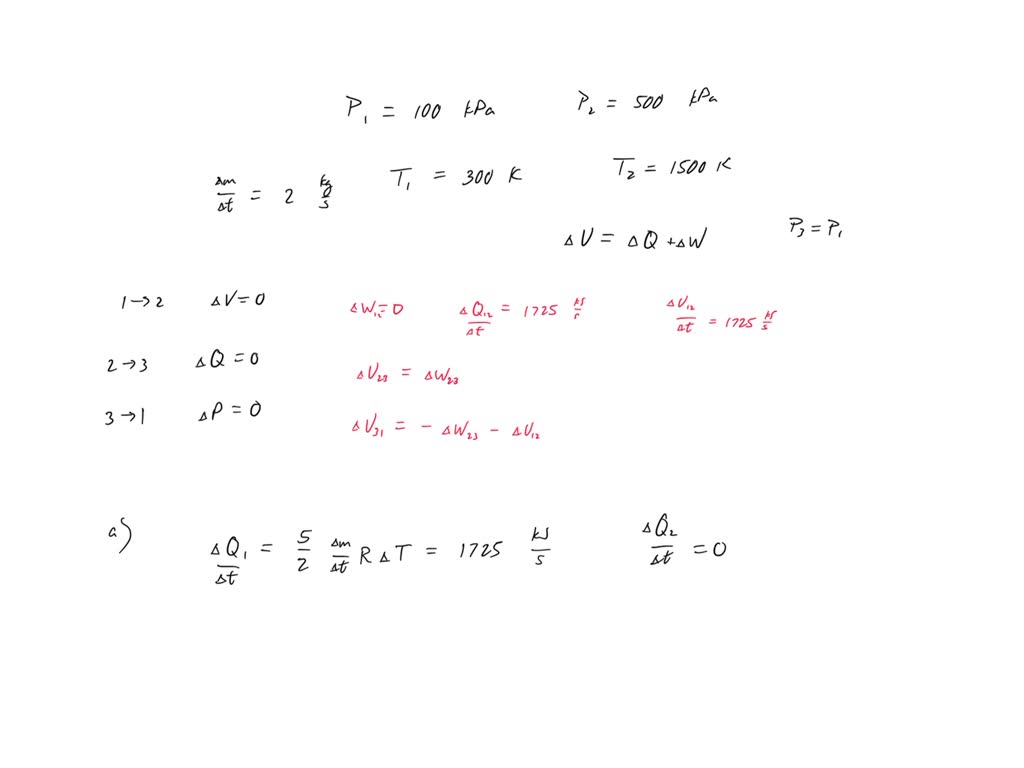 P₁ = 100 kPa P₂ = 500 kPa
Δm/Δt = 2 kg/s T₁ = 300 K T₂ = 1500 K
ΔU = ΔQ + ΔW P₃ = P₁
1→2 ΔV=0 ΔW₁₂=0 ΔQ₁₂/Δt = 1725 kJ/s ΔU₁₂/Δt = 1725 kJ/s
2→3 ΔQ=0 ΔU₂₃ = ΔW₂₃
3→1 ΔP=0 ΔU₃₁ = - ΔW₂₃ - ΔU₁₂
a) ΔQ₁/Δt = 5/2 Δm/Δt R ΔT = 1725 kJ/s ΔQ₂/Δt = 0